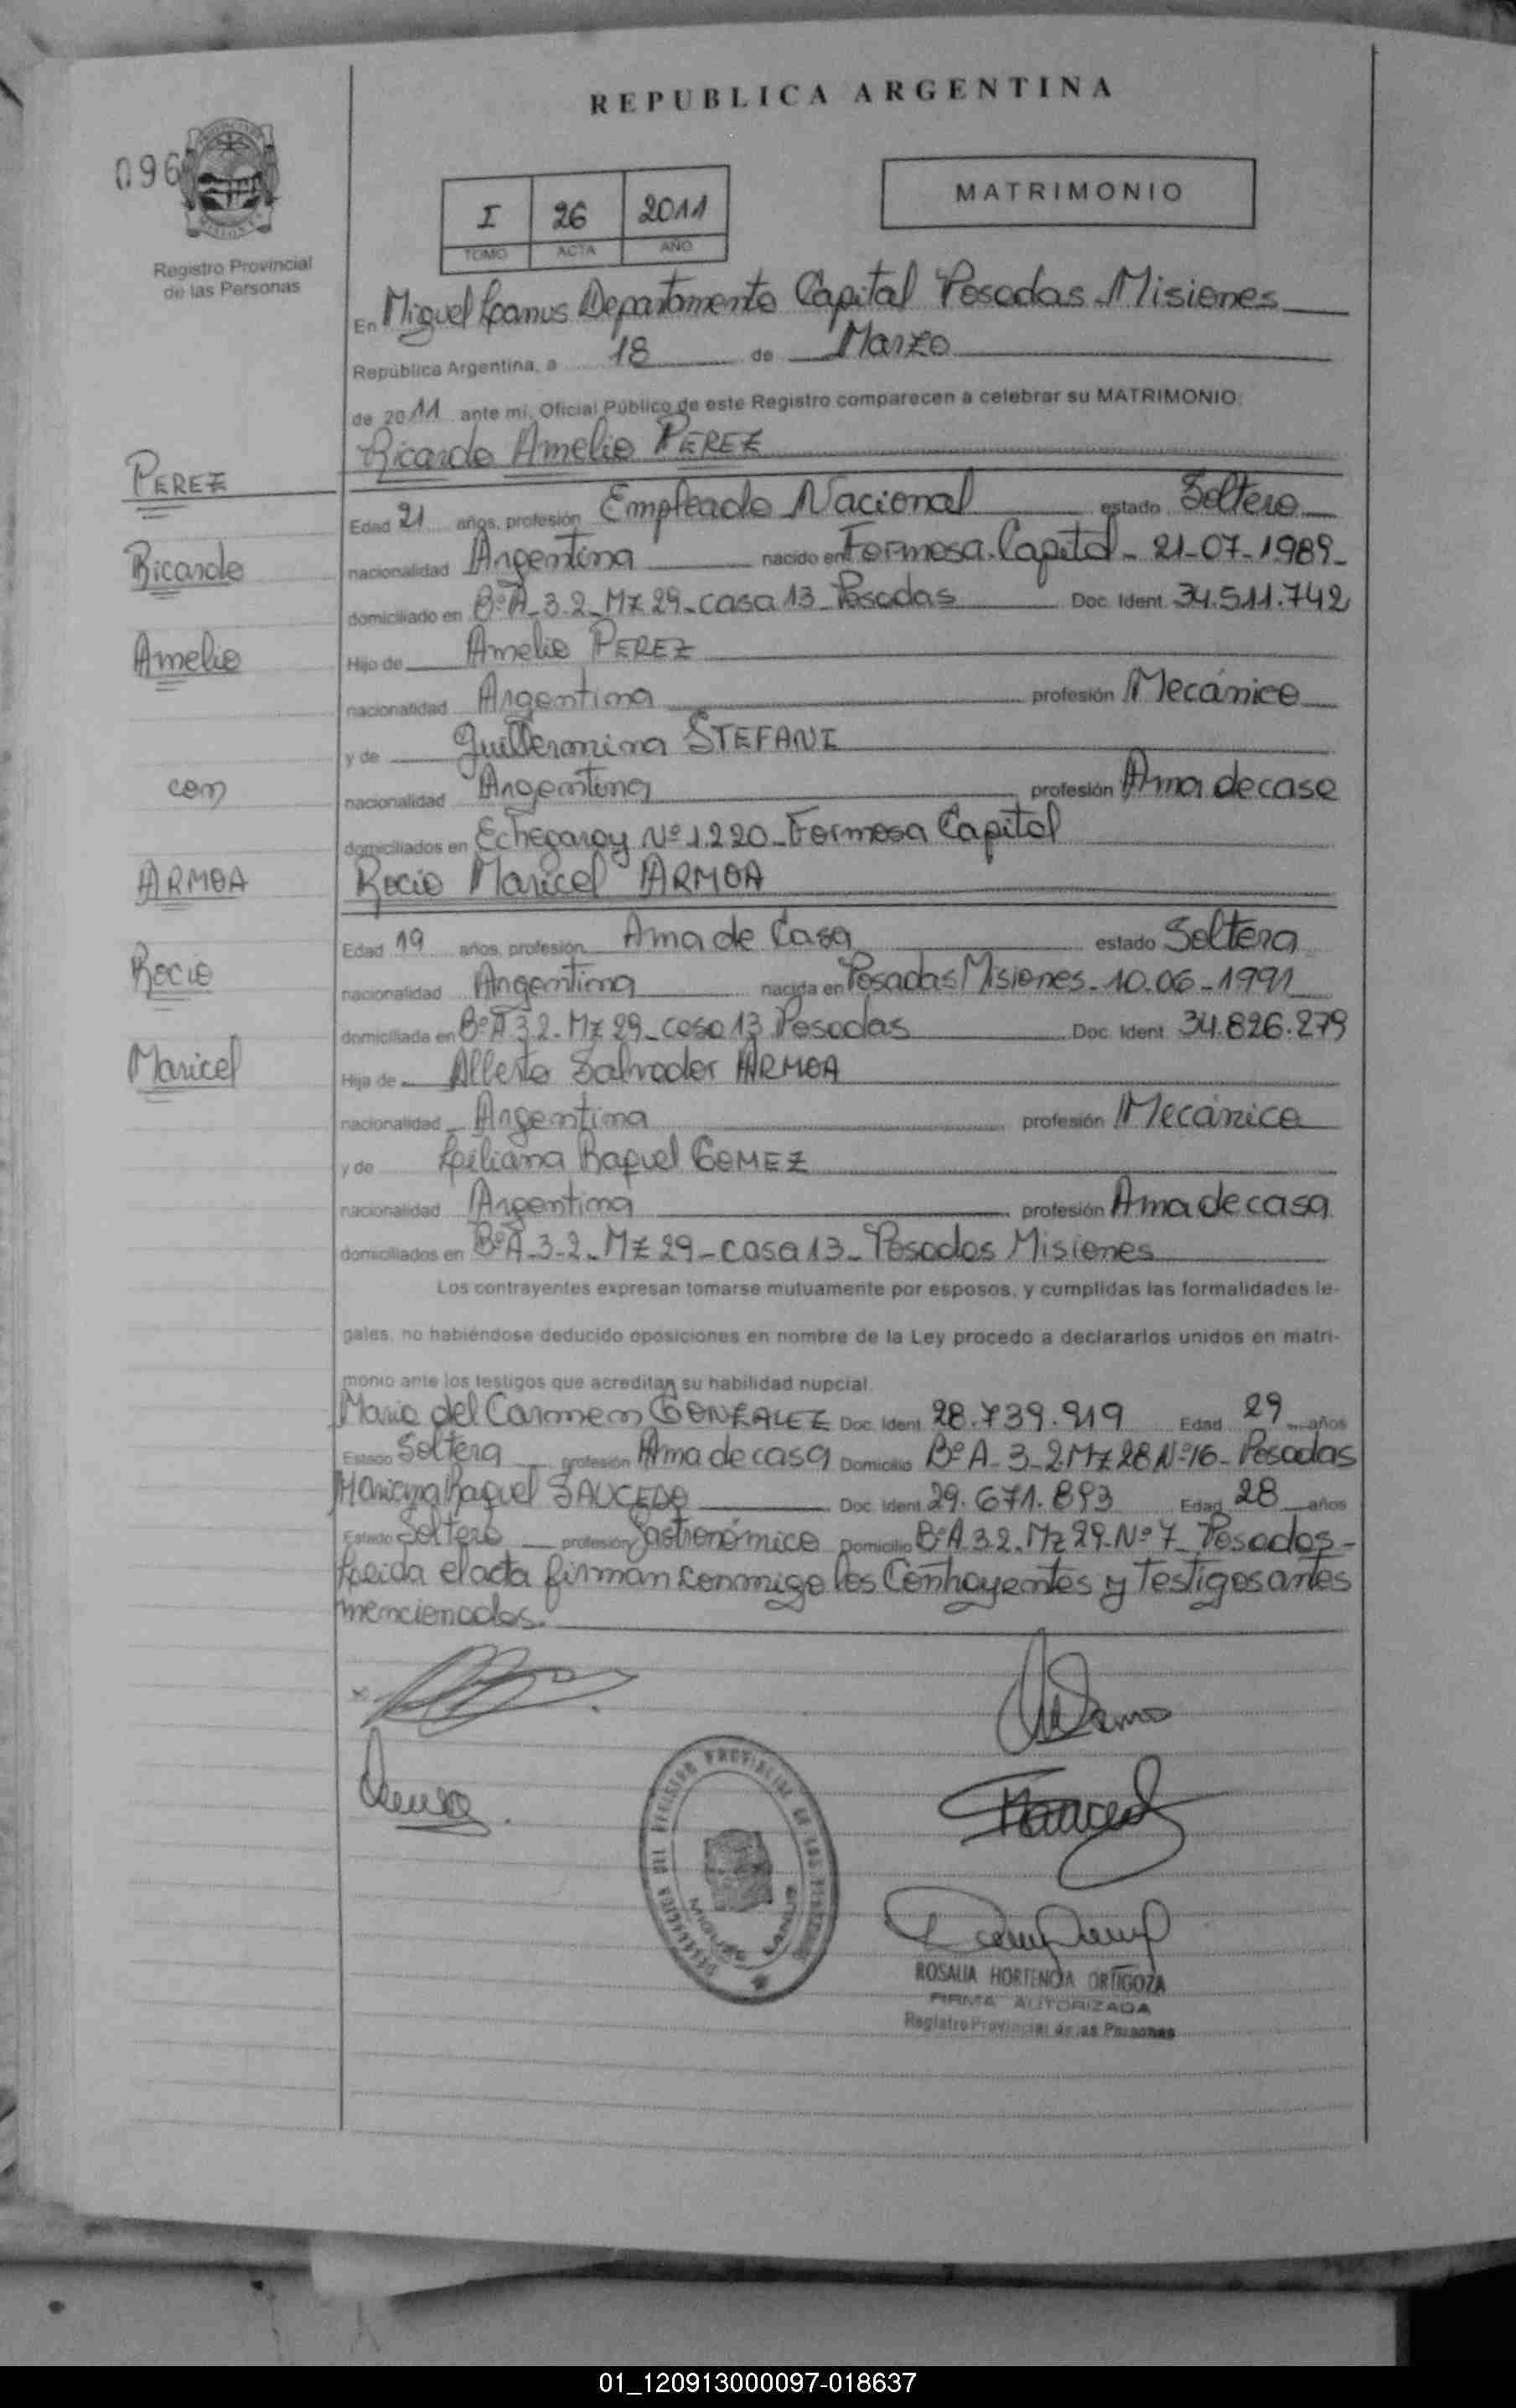 REPUBLICA ARGENTINA
096
MATRIMONIO
I 26 2011
TOMO ACTA AÑO
Registro Provincial
de las Personas
En Miguel Lanus Departamento Capital Posadas Misiones
República Argentina, a 18 de Marzo
de 2011 ante mi, Oficial Público de este Registro comparecen a celebrar su MATRIMONIO:
Ricardo Amelio PEREZ
PEREZ
Edad 21 años, profesión Empleado Nacional estado Soltero
Ricardo
nacionalidad Argentina nacido en Formosa. Capital - 21-07-1989-
domiciliado en Bº A-3-2-Mz 29-casa 13-Posadas Doc. Ident. 34.511.742
Amelio
Hijo de Amelio PEREZ
nacionalidad Argentina profesión Mecánico
y de Guillermina STEFANI
con
nacionalidad Argentina profesión Ama de casa
domiciliados en Echegaray Nº 1.220-Formosa Capital
ARMOA
Rocio Maricel ARMOA
Edad 19 años, profesión Ama de Casa estado Soltera
Rocio
nacionalidad Argentina nacida en Posadas Misiones-10-06-1991
domiciliada en Bº A-3.2-Mz 29-casa 13 Posadas Doc. Ident. 34.826.279
Maricel
Hija de Alberto Salvador ARMOA
nacionalidad Argentina profesión Mecánico
y de Liliana Raquel GOMEZ
nacionalidad Argentina profesión Ama de casa
domiciliados en Bº A-3-2-Mz 29-casa 13-Posadas Misiones
Los contrayentes expresan tomarse mutuamente por esposos, y cumplidas las formalidades le-
gales, no habiéndose deducido oposiciones en nombre de la Ley procedo a declararlos unidos en matri-
monio ante los testigos que acreditan su habilidad nupcial.
Maria del Carmen GONZALEZ Doc. Ident. 28.739.919 Edad 29 años
Estado Soltera profesión Ama de casa Domicilio Bº A-3-2 Mz 28 Nº 16-Posadas
Raquel SAUCEDO Doc. Ident. 29.671.893 Edad 28 años
Estado Soltero profesión Gastronómico Domicilio Bº A 3.2.Mz 29-Nº 7-Posadas-
Leida el acta firman conmigo los Contrayentes y Testigos antes
mencionados.
MIGUEL LANUS
ROSALIA HORTENCIA ORTIGOZA
FIRMA AUTORIZADA
Registro Provincial de las Personas
01_120913000097-018637